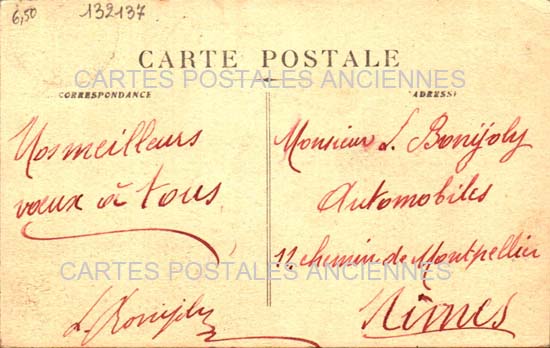 6,50
132137
CARTE POSTALE
CARTES POSTALES ANCIENNES
CORRESPONDANCE
ADRESSE
Nos meilleurs
vœux à tous
L. Bonijoly
Monsieur L. Bonijoly
Automobiles
12 chemin de Montpellier
Nîmes
CARTES POSTALES ANCIENNES